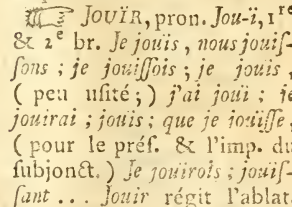 ☞ JOUÏR, pron. Jou-ï, 1re
& 2e br. Je jouis, nous jouiſ-
ſons ; je jouiſſois ; je jouis,
( peu uſité ; ) j'ai joui ; je
jouirai ; jouis ; que je jouiſſe,
( pour le préſ. & l'imp. du
ſubjonct. ) Je jouirois ; jouiſ-
ſant ... Jouir régit l'ablat.